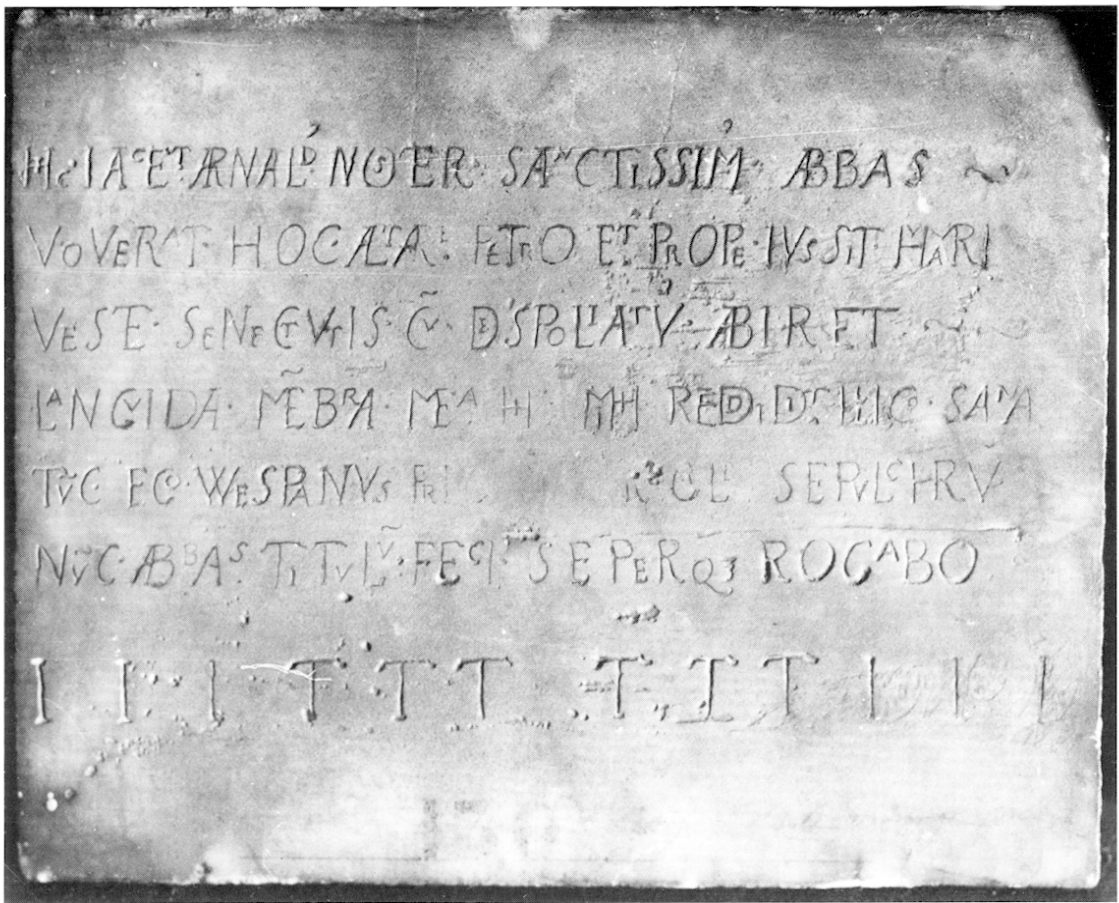 HIC IACET ARNALD NOSTER SANCTISSIM ABBAS
VOVERAT HOC ALTARE PETRO ET PROPE IVSSIT HVMARI
VESTE SENECTVTIS CV DESPOLIATV ABIRET
LANGVIDA MEBRA MEA MIHI REDDIDIT HIC SANA
TVC EGO WESPANVS SEPVLCHRV
NVC ABBAS TITVLV FECI SEPERQ3 ROGABO
I I I T T T T T T I I I